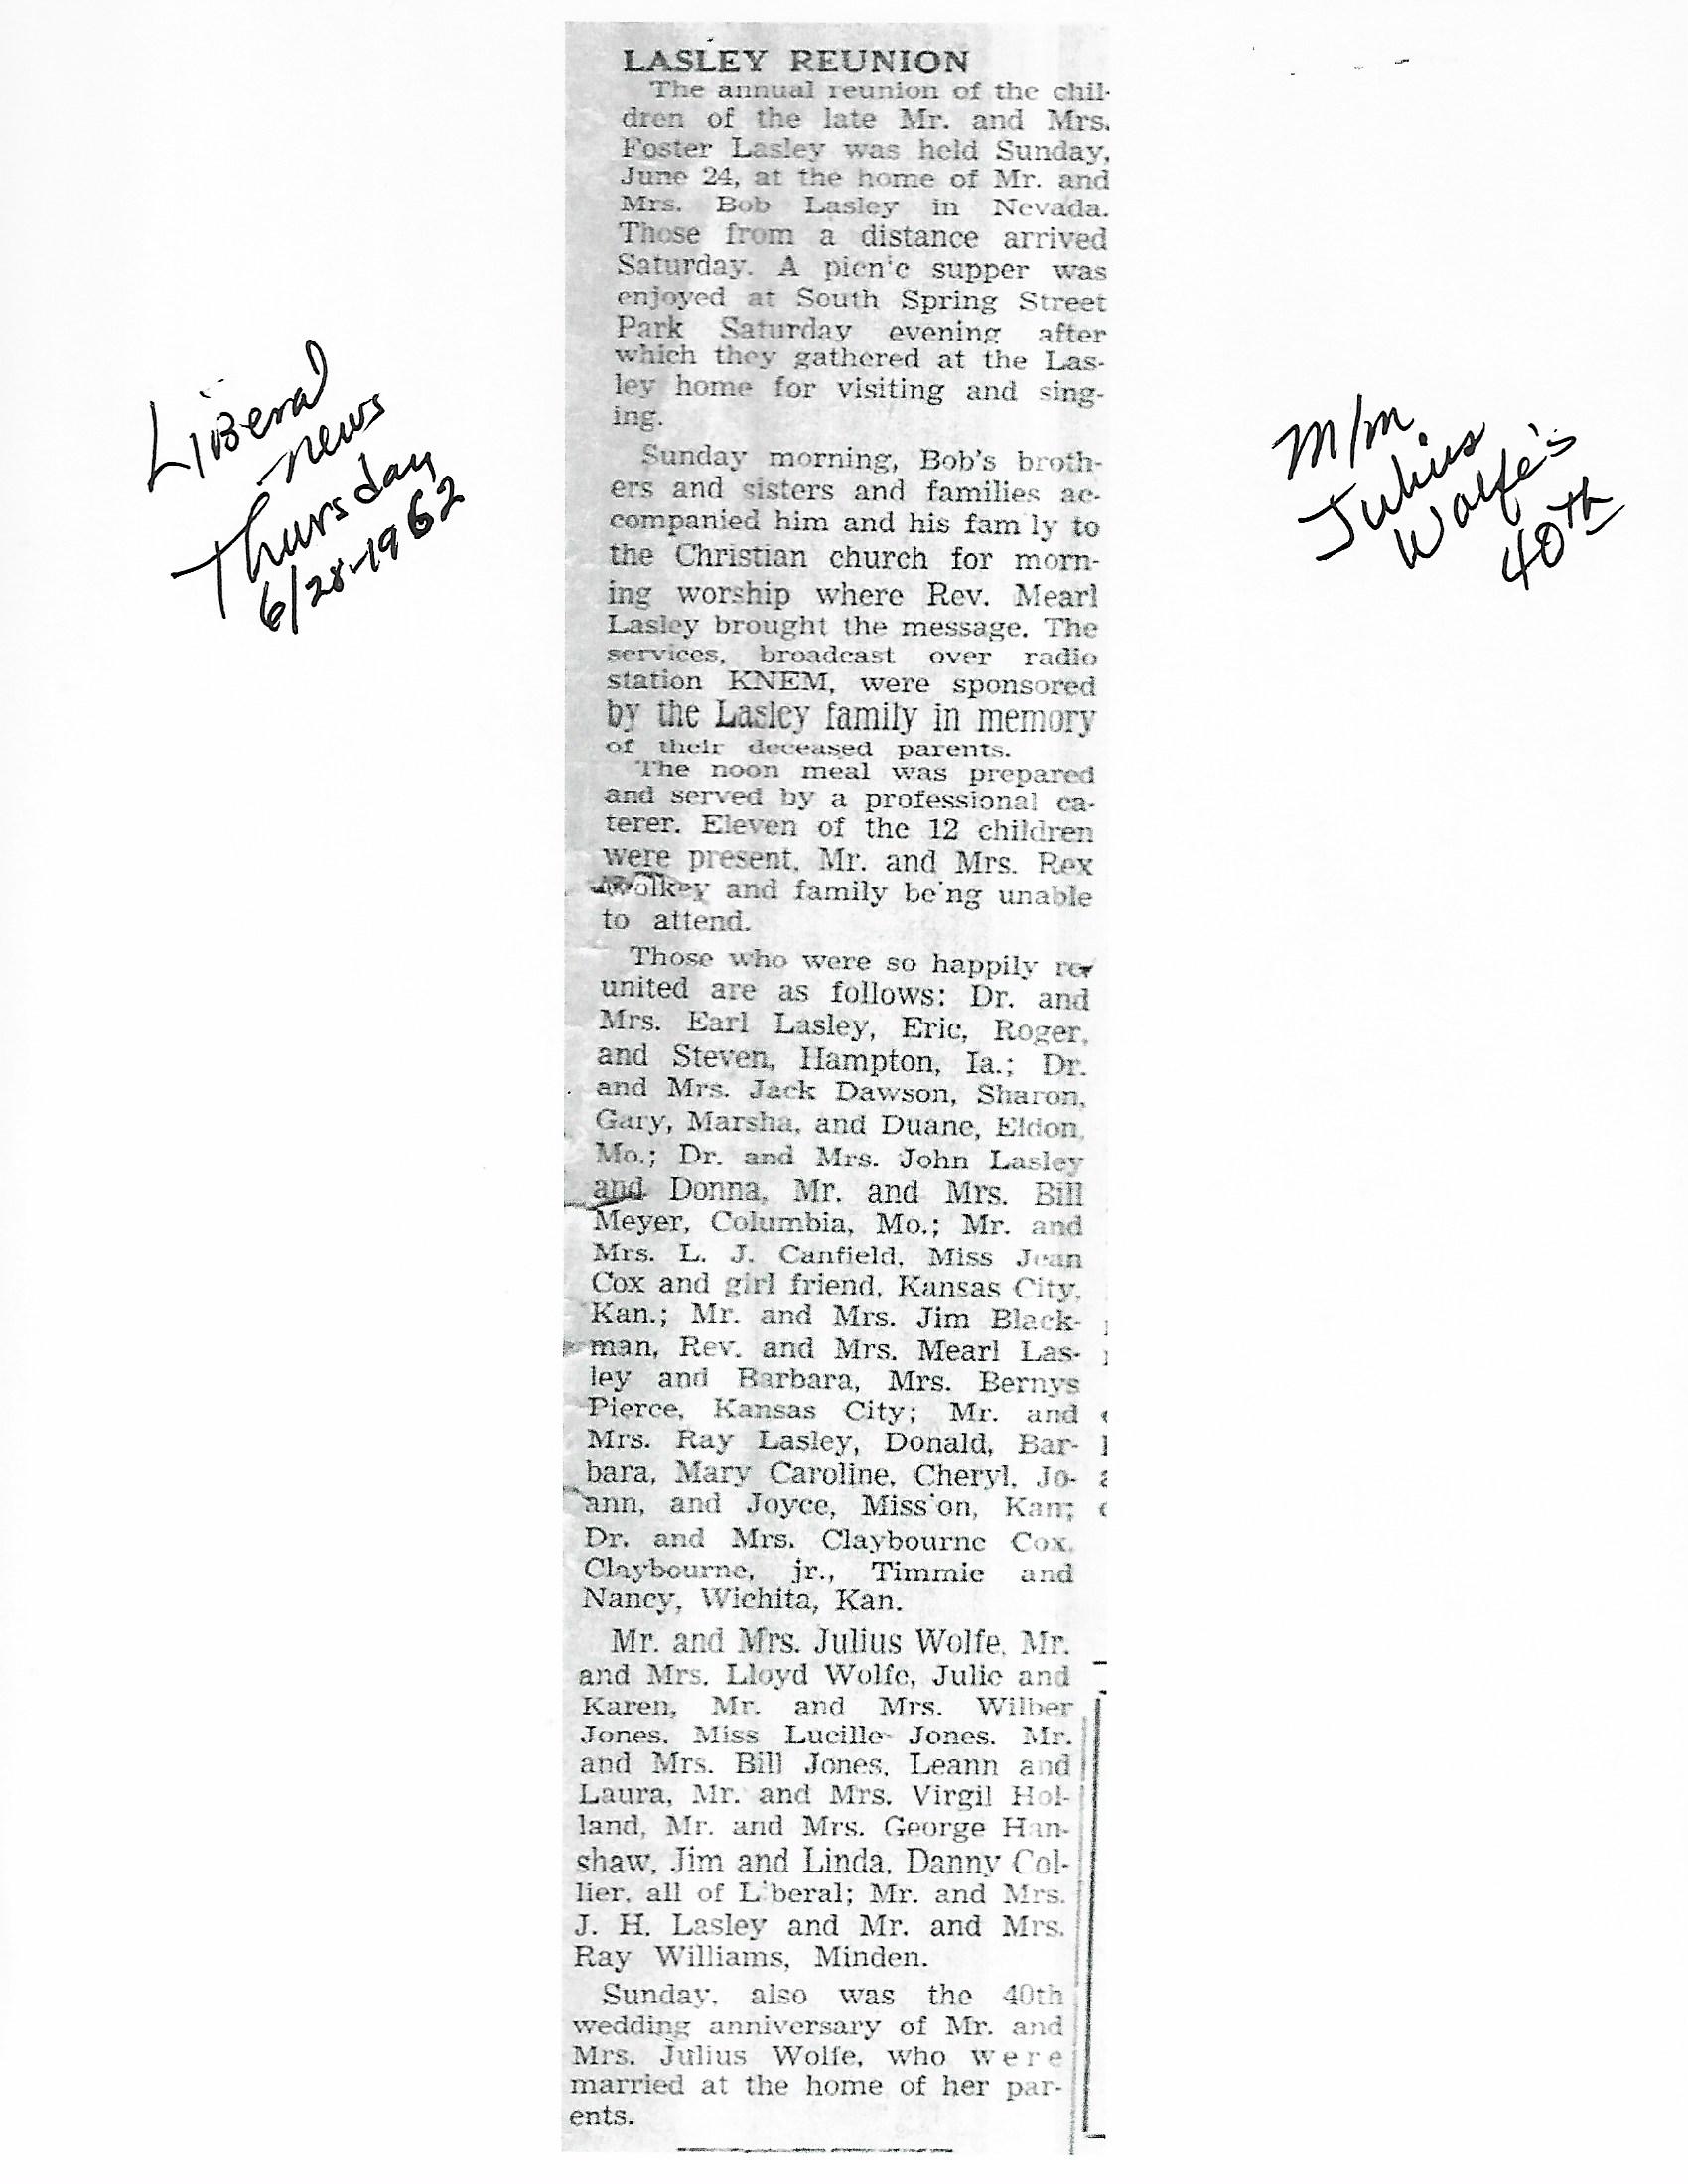 LASLEY REUNION
The annual reunion of the chil-
dren of the late Mr. and Mrs.
Foster Lasley was held Sunday,
June 24, at the home of Mr. and
Mrs. Bob Lasley in Nevada.
Those from a distance arrived
Saturday. A picn'c supper was
enjoyed at South Spring Street
Park Saturday evening after
which they gathered at the Las-
ley home for visiting and sing-
ing.
Sunday morning, Bob's broth-
ers and sisters and families ac-
companied him and his fam ly to
the Christian church for morn-
ing worship where Rev. Mearl
Lasley brought the message. The
services, broadcast over radio
station KNEM, were sponsored
by the Lasley family in memory
of their deceased parents.
The noon meal was prepared
and served by a professional ca-
terer. Eleven of the 12 children
were present, Mr. and Mrs. Rex
Wolkey and family be'ng unable
to attend.
Those who were so happily re-
united are as follows: Dr. and
Mrs. Earl Lasley, Eric, Roger,
and Steven, Hampton, Ia.; Dr.
and Mrs. Jack Dawson, Sharon,
Gary, Marsha, and Duane, Eldon,
Mo.; Dr. and Mrs. John Lasley
and Donna, Mr. and Mrs. Bill
Meyer, Columbia, Mo.; Mr. and
Mrs. L. J. Canfield, Miss Jean
Cox and girl friend, Kansas City,
Kan.; Mr. and Mrs. Jim Black-
man, Rev. and Mrs. Mearl Las-
ley and Barbara, Mrs. Bernys
Pierce, Kansas City; Mr. and
Mrs. Ray Lasley, Donald, Bar-
bara, Mary Caroline, Cheryl, Jo-
ann, and Joyce, Miss'on, Kan;
Dr. and Mrs. Claybourne Cox,
Claybourne, jr., Timmie and
Nancy, Wichita, Kan.
Mr. and Mrs. Julius Wolfe, Mr.
and Mrs. Lloyd Wolfe, Julie and
Karen, Mr. and Mrs. Wilber
Jones, Miss Lucille Jones, Mr.
and Mrs. Bill Jones, Leann and
Laura, Mr. and Mrs. Virgil Hol-
land, Mr. and Mrs. George Han-
shaw, Jim and Linda, Danny Col-
lier, all of L'beral; Mr. and Mrs.
J. H. Lasley and Mr. and Mrs.
Ray Williams, Minden.
Sunday, also was the 40th
wedding anniversary of Mr. and
Mrs. Julius Wolfe, who were
married at the home of her par-
ents.
Liberal
news
Thursday
6/28-1962
M/m
Julius
Wolfe's
40th